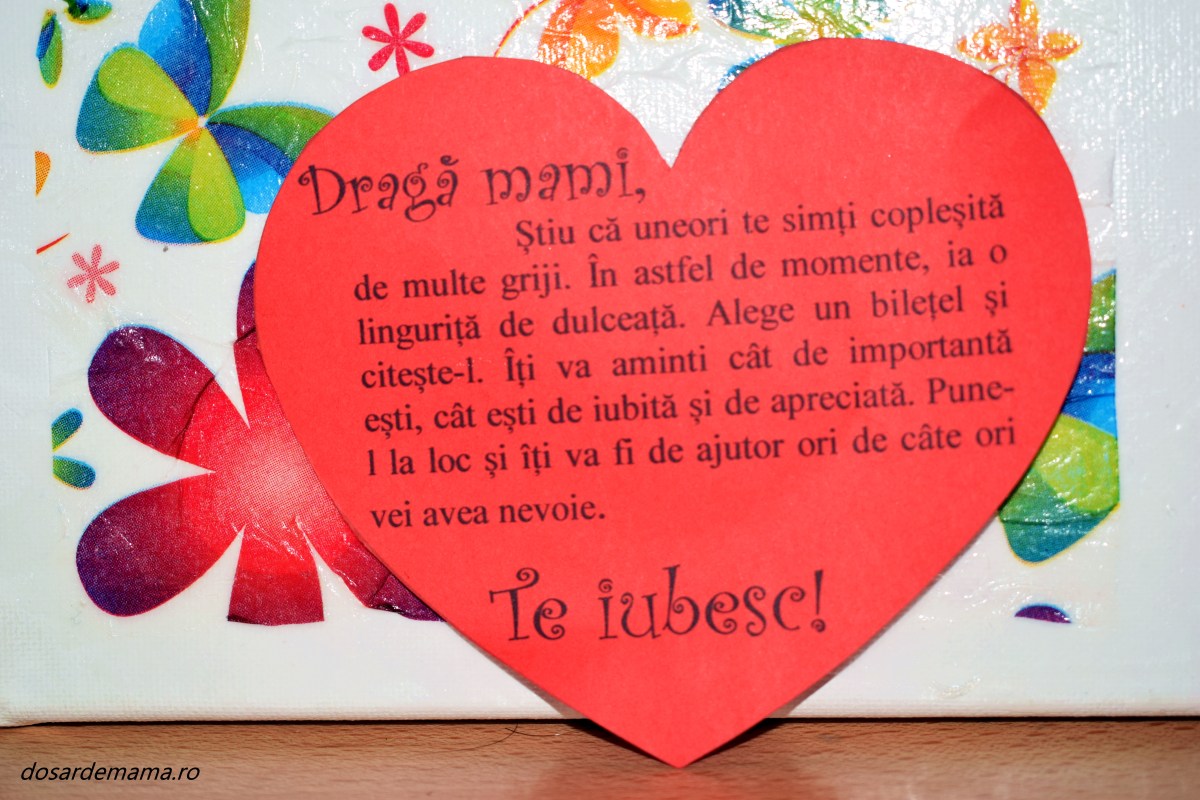 Dragă mami,
Știu că uneori te simți copleșită
de multe griji. În astfel de momente, ia o
linguriță de dulceață. Alege un bilețel și
citește-l. Îți va aminti cât de importantă
ești, cât ești de iubită și de apreciată. Pune-
l la loc și îți va fi de ajutor ori de câte ori
vei avea nevoie.
Te iubesc!
dosardemama.ro